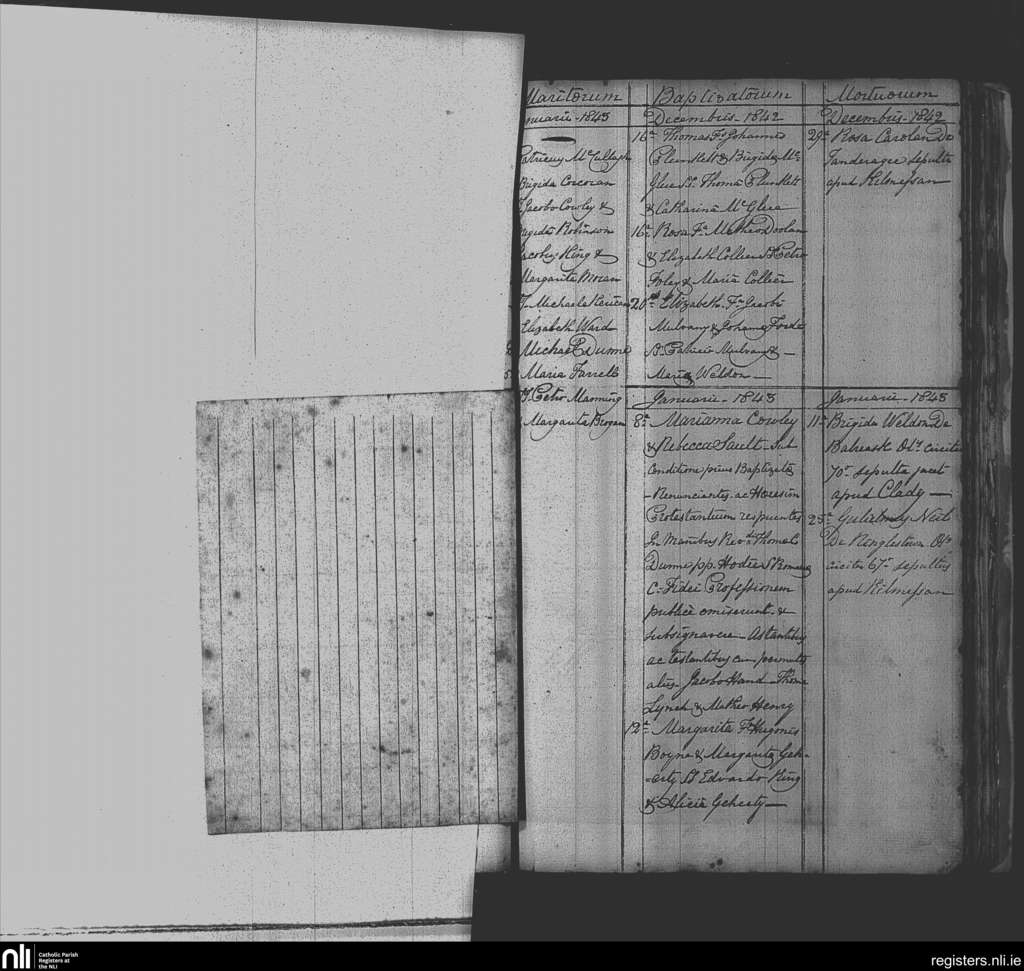 Maritorum
nuarii - 1843
Patricius McCullagh
Brigida Corcoran
T. Jacobo Cowley &
Brigida Robinson
Jacobus King &
Margarita Moran
T. Michaele
Elizabeth Ward
Michael Dunne
Maria Farrell
T. Petro Manning
Margarita Brogan
Baptizatorum
Decembris - 1842
16a Thomas Fs Johanne
Plunkett & Brigida Mc
Glue Ss Thoma Plunkett
& Catharina McGlue
16a Rosa Fa Matheo Doolan
& Elizabeth Collier Ss Petro
Foley & Maria Collier
20a Elizabeth Fa Jacobi
Mulvany & Johanna Forde
Ss. Patricio Mulvany & -
Maria Weldon -
Januarii - 1843
8a Marianna Cowley
& Rebecca Sault - Sub
Conditione prius Baptizatæ
- Renunciantes ac Heresim
Protestantium respuentes
In Manibus Revdi Thomæ
Dunne pp. Hodie S Romana
C. Fidei Professionem
publice emiserunt &
subsignavere - Astantibus
ac testantibus cum permultis
aliis - Jacobo Hand - Thoma
Lynch & Matheo Henry
12a Margarita Fa Hugonis
Boyne & Margarita Geh-
-erty Ss Edvardo King
& Alicia Geherty -
Mortuorum
Decembris - 1842
29a Rosa Carolan De
Tanderagee sepulta
apud Kilmessan
Januarii - 1843
11a Brigida Weldon De
Balreask Obt circiter
70m sepulta jacet
apud Clady -
25a Gulielmus Neil
De Ringlestown Obt
circiter 67m sepultus
apud Kilmessan
nli
Catholic Parish
Registers at
the NLI
registers.nli.ie